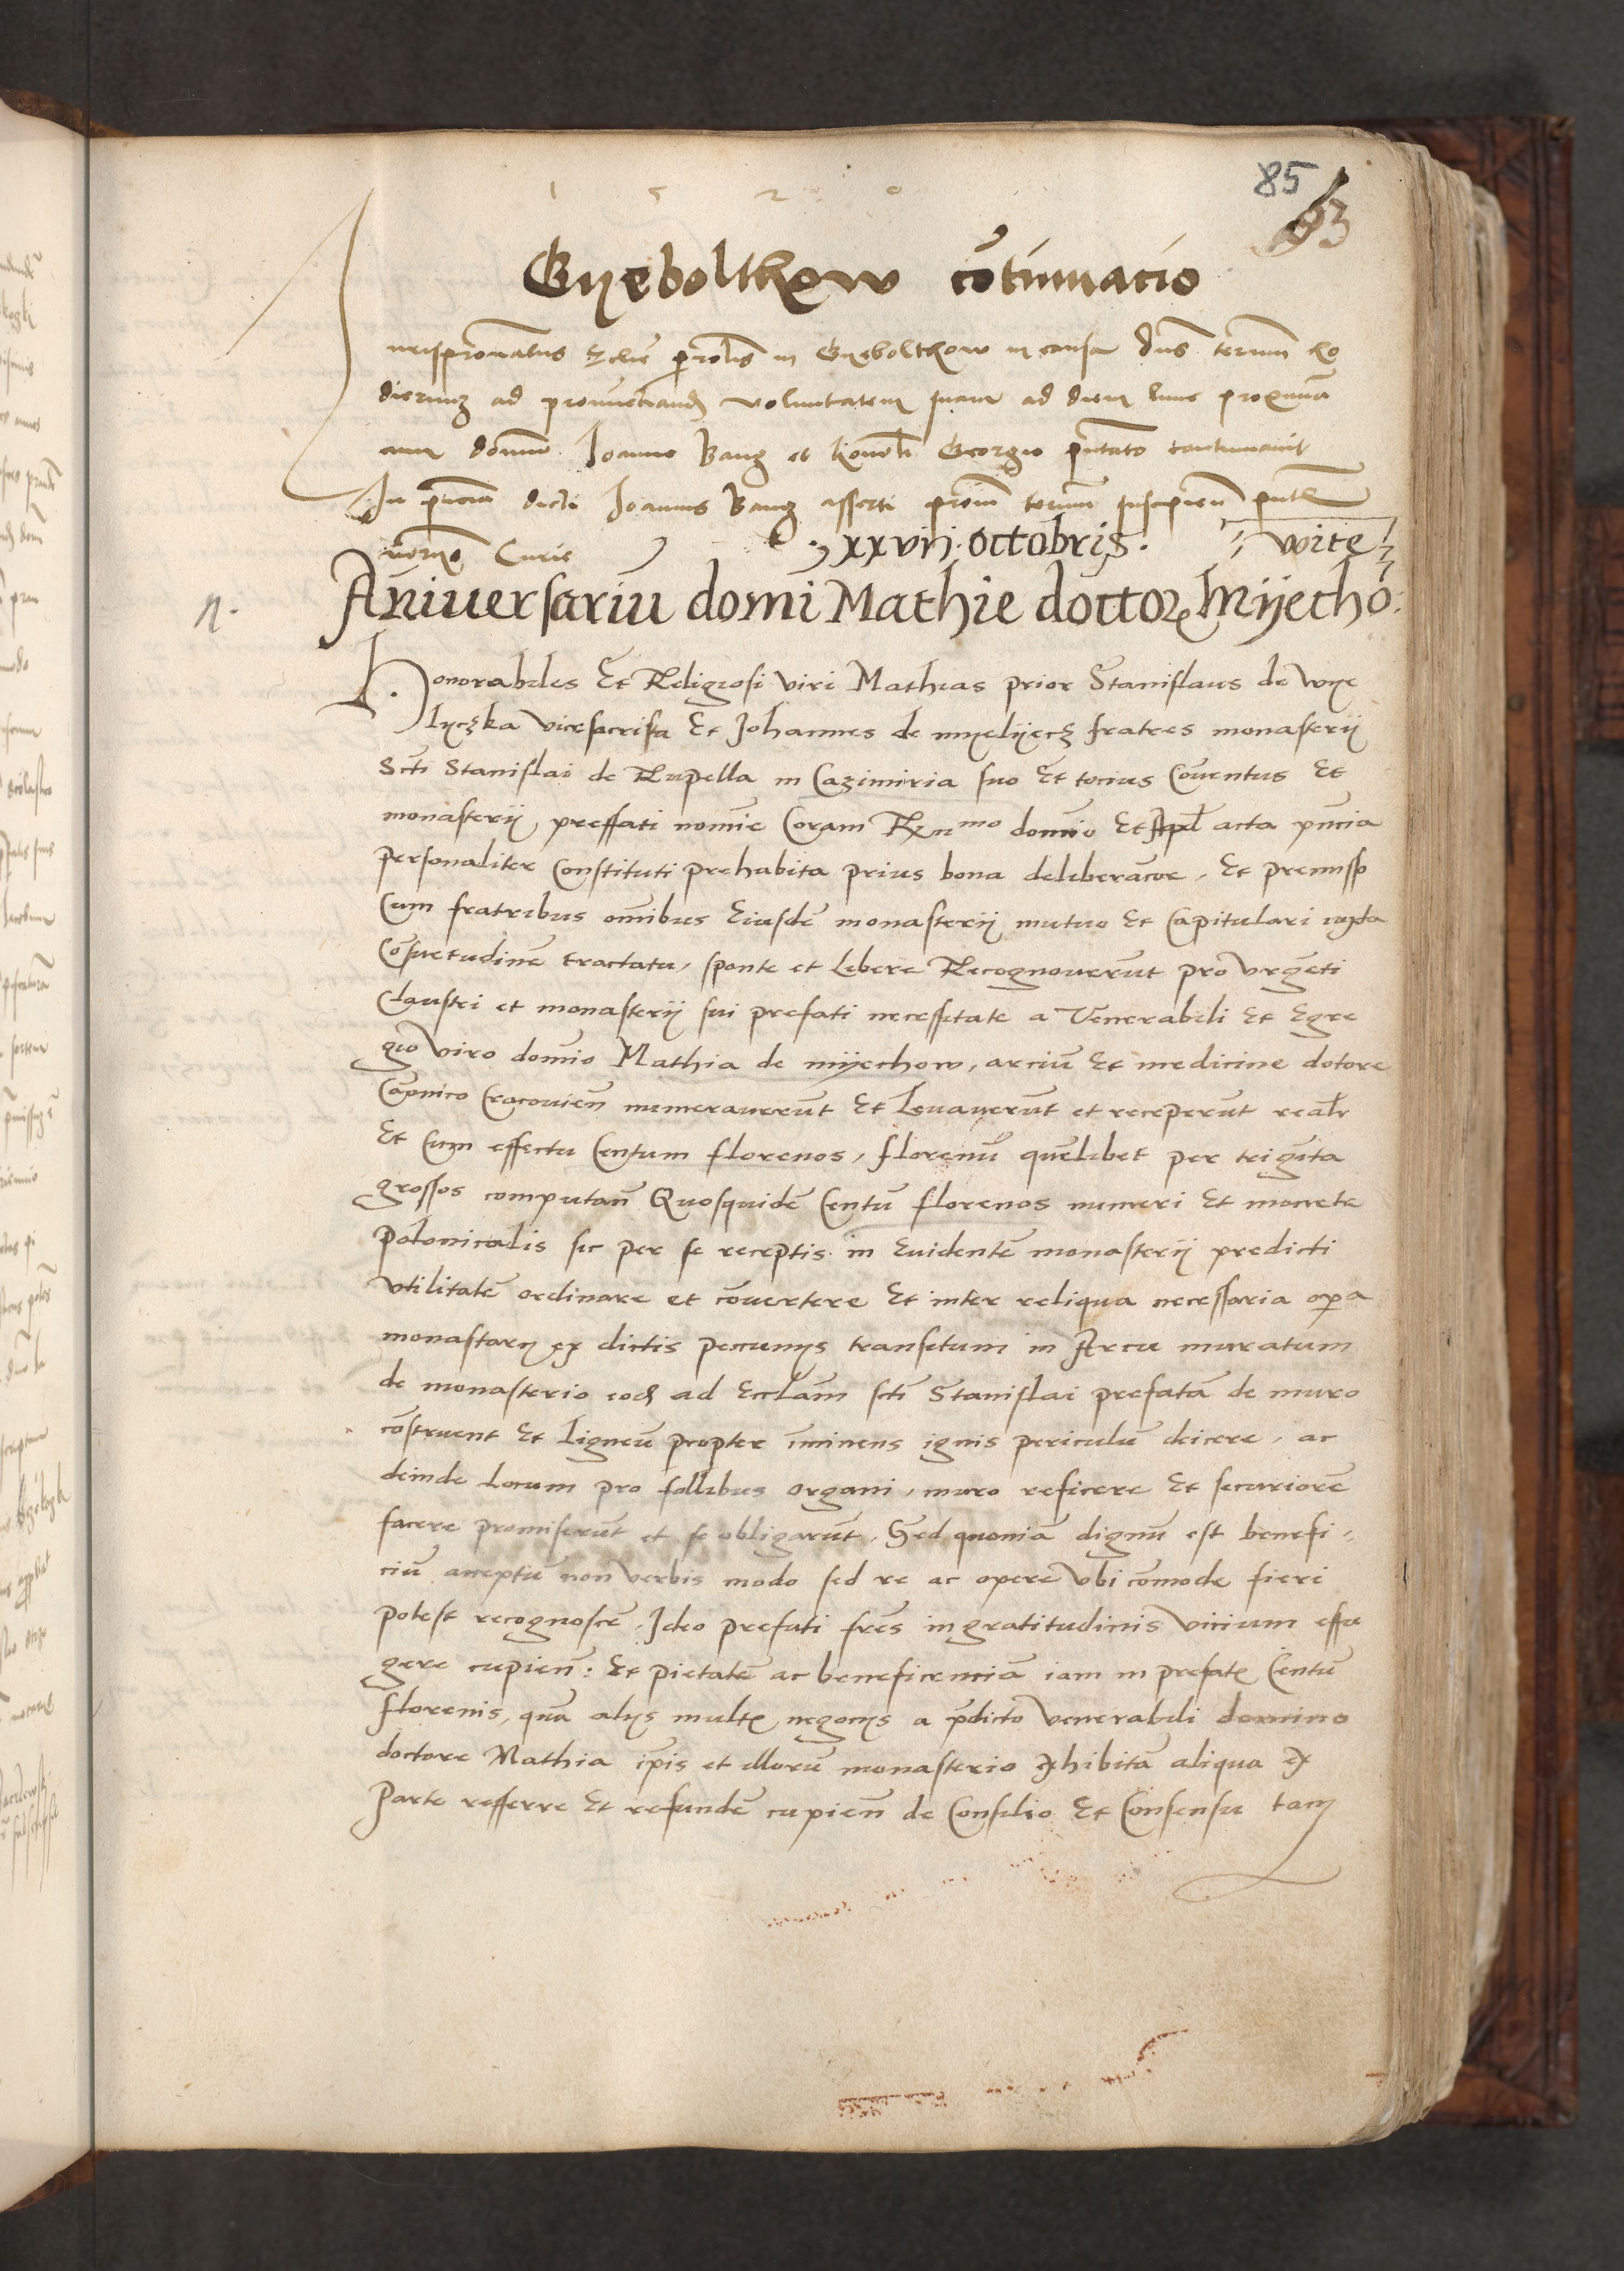 1520
85
83
Gyeboltkow cōtinuacio
in Gyeboltkow in causa Dns ho
ad voluntatem suam ad diem lune proximā
cum domino Joanne Banz et Georgio continuavit
In dicti Joannis Banz asserti
Curie ·xxvii·octobris· wite
n. Aniuersariū domi Mathie doctor Myecho:
Honorabiles Et Religiosi viri Mathias prior Stanislaus de wye
lyczka vicesacrista Et Johannes de myelyecz fratres monasterij
Scti Stanislai de Rupella in Cazimiria suo Et tocius Cōuentus Et
monasterij preffati nomīe Coram Rxnmo domīo Et acta pn̄cia
personaliter Constituti prehabita prius bona deliberacōe, Et premisso
Cum fratribus omībus Eiusdē monasterij mutuo Et Capitulari iuxta
Cōsuetudinē tractatu, sponte et libere Recognouerūt pro vrgēti
Claustri et monasterij sui prefati necessitate a Venerabili Et Egre
gio viro domīo Mathia de myechow, arciū Et medicine dotore
Canonico Cracouien̄ numerauerūt Et Leuauerūt et receperūt realr
Et Cum effectu Centum florenos, florenū quēlibet per trigīta
grossos computan̄ Quosquidē Centū florenos numeri Et monete
Polonicalis sic per se receptis in Euidentē monasterij predicti
vtilitatē ordinare et cōuertere Et inter reliqua necessaria opa
monastarij ex dictis peccunijs transitum in Arcu muratum
de monasterio eod ad Eccl̄am scti Stanislai prefatā de muro
cōstruent Et ligneū propter iminens ignis periculū deicere, ac
deinde Locum pro follibus organi, muro reficere Et securiorē
facere promiserūt et se obligarūt. Sed quoniā dignū est benefi-
ciū acceptū non verbis modo sed re ac opere vbi cōmode fieri
potest recognoscē. Ideo prefati frēs ingratitudinis vicium effu
gere cupien̄: Et pietatē ac beneficenciā iam in prefatis Centū
florenis, quā alijs multis negocijs a pdicto venerabili domino
doctore Mathia ip̄is et illorū monasterio exhibitā aliqua ex
Parte refferre Et refundē cupien̄ de Consilio Et Consensu tam